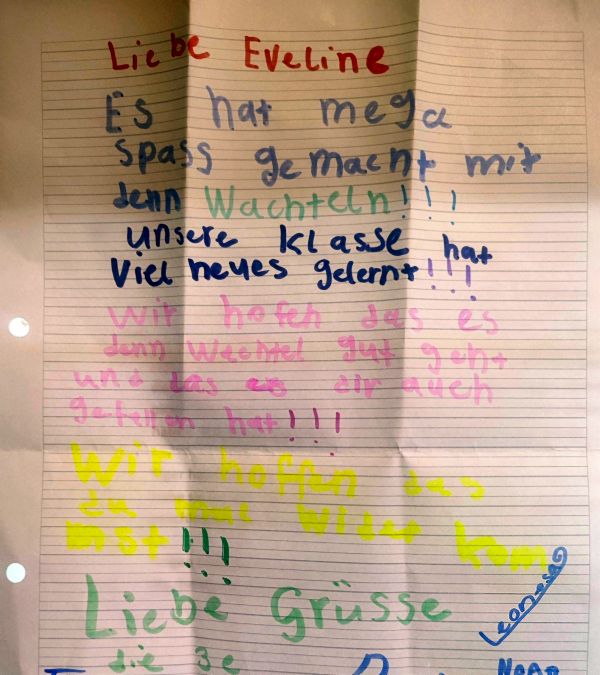 Liebe Eveline
Es hat mega
spass gemacht mit
denn Wachteln!!!
unsere klasse hat
Viel neues gelernt!!!
wir hofen das es
denn Wachtel gut geht
und das es dir auch
gefallen hat!!!
Wir hoffen das
du mal wider kom
mst!!!
Liebe Grüsse
die 3e
Leonesa
Noar